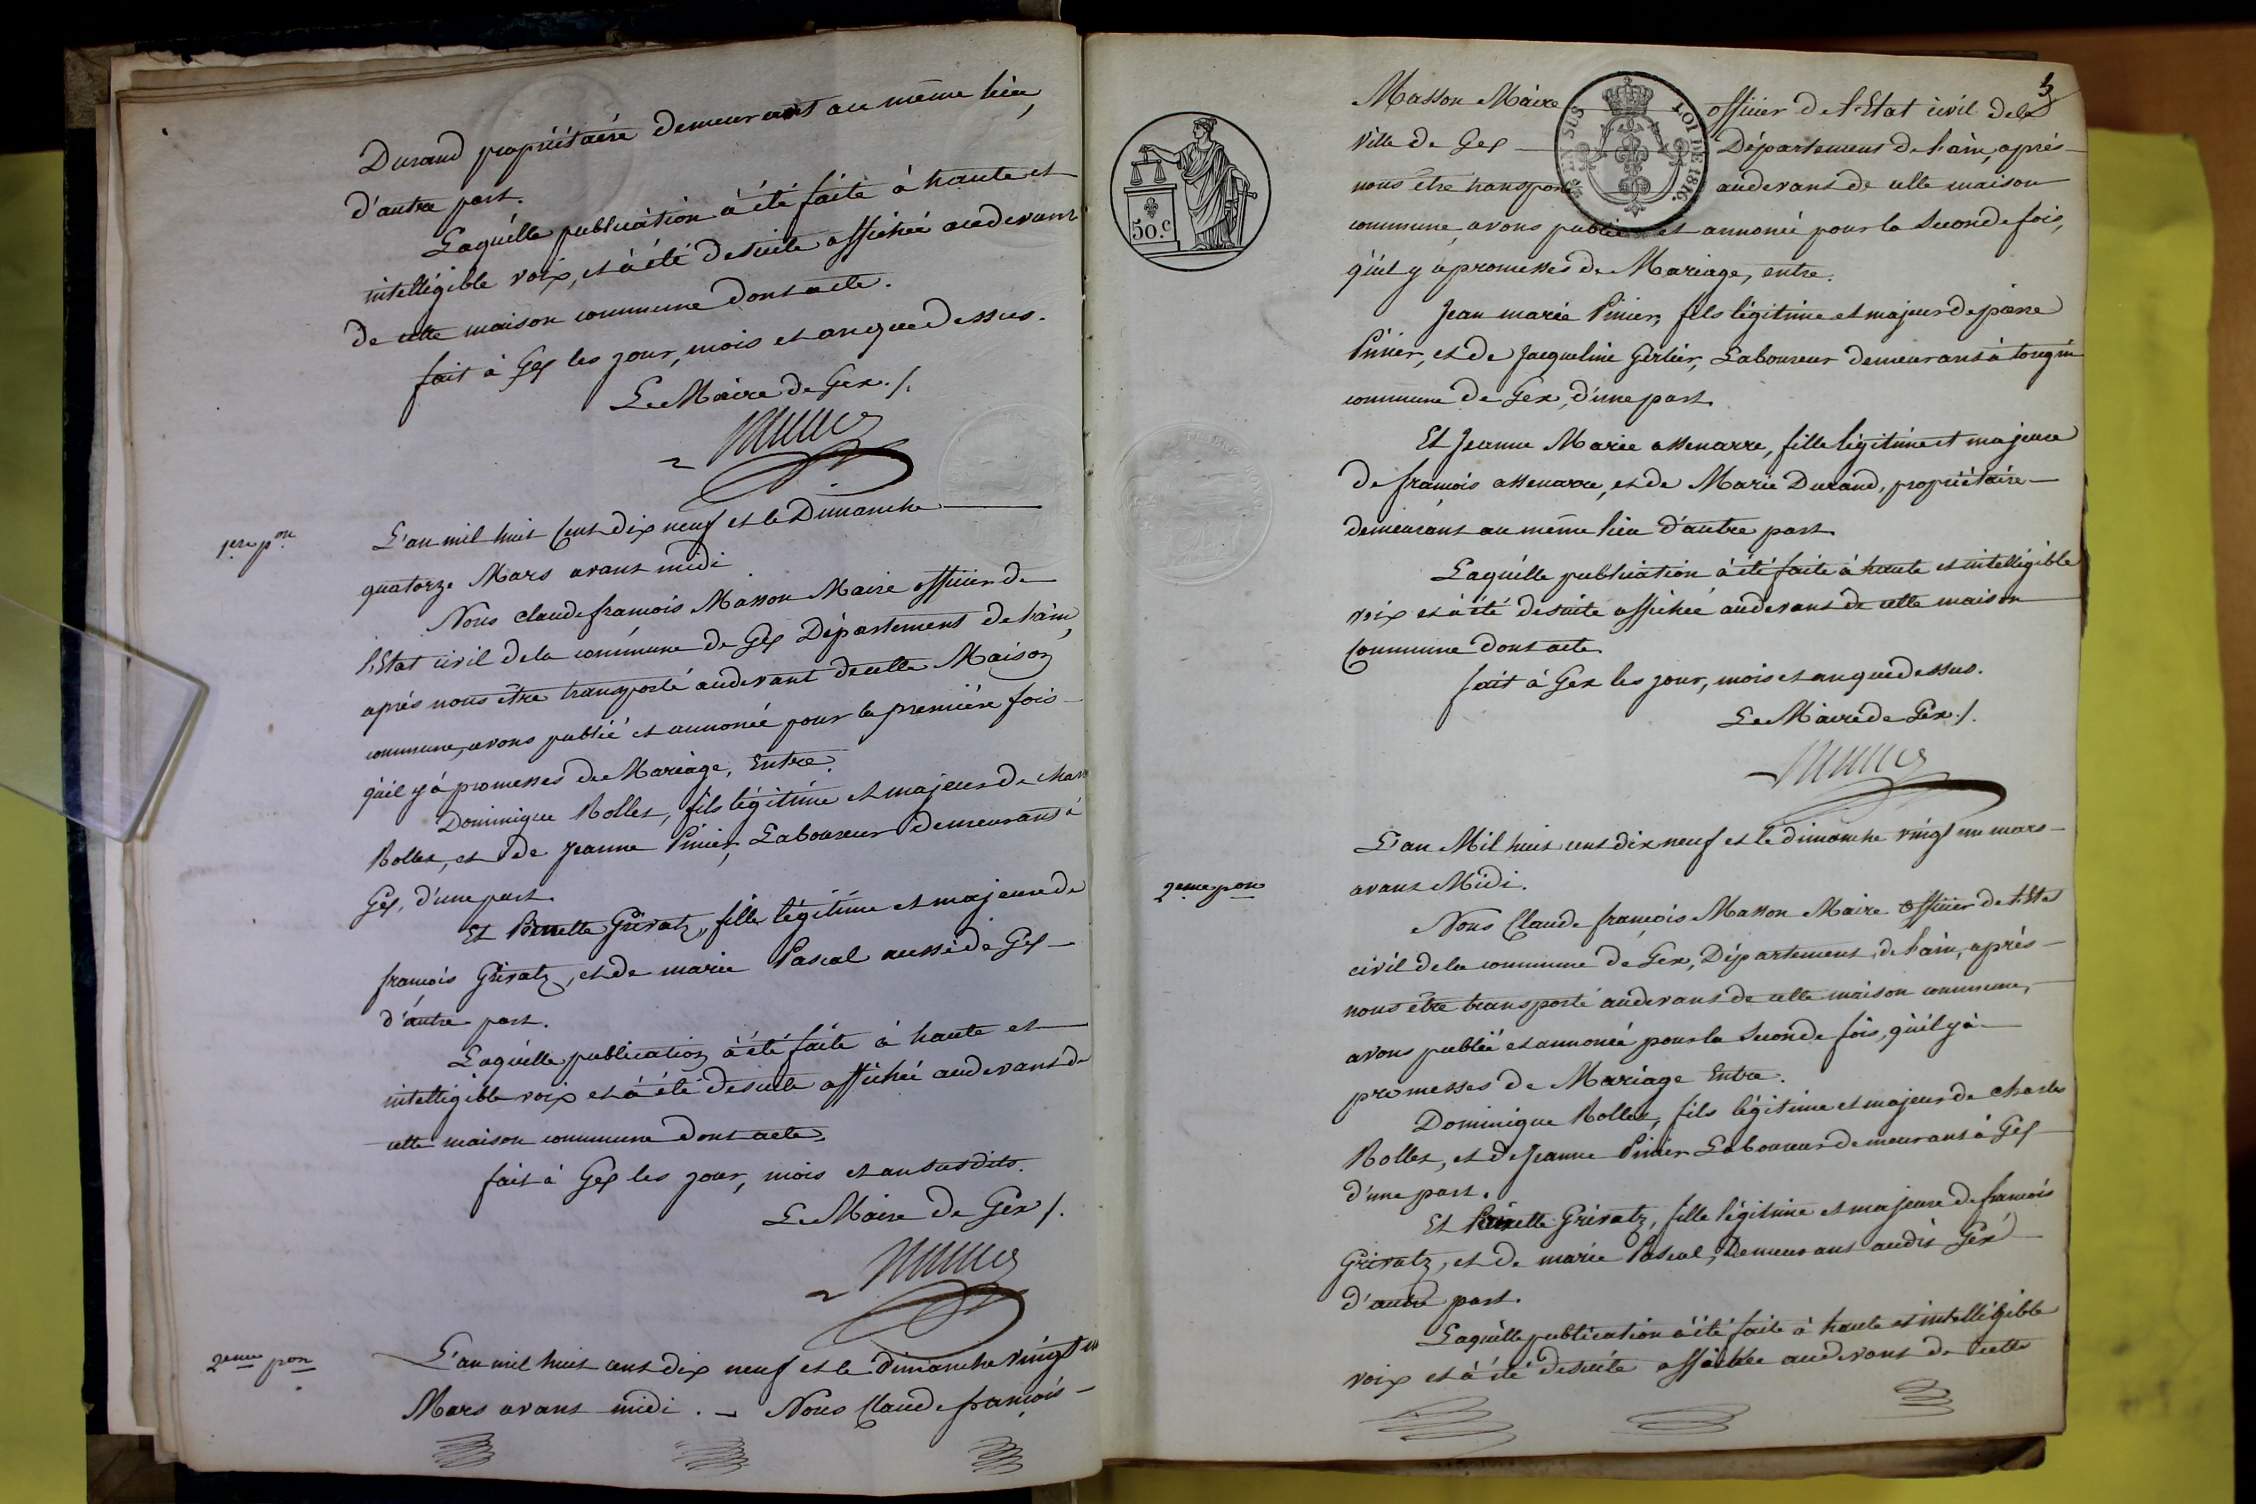 Durand propriétaire demeurant au même lieu,
d'autre part.
Laquelle publication à été faite à haute et
intelligible voix, et à été desuite affichée audevant
de cette maison commune dont acte.
fait à Gex les jour, mois et an que dessus.
Le Maire de Gex ./.
1ere pon
L'an mil huit Cent dix neuf et le Dimanche
quatorze Mars avant midi
Nous claude françois Masson Maire officier de
l'Etat civil de la commune de Gex Département de l'ain,
après nous être transporté audevant de cette Maison
commune, avons publié et annoncé pour la première fois
qu'il y à promesses de Mariage, Entre.
Dominique Rollet, fils légitime et majeur de char
Rollet, et de Jeanne Pinier, Laboureur demeurant à
Gex, d'une part.
Et Grivatz, fille légitime et majeure de
françois Grivatz, et de marie Pascal aussi de Gex
d'autre part.
Laquelle publication à été faite à haute et
intelligible voix et à été desuite affichée audevant de
cette maison commune dont acte.
fait à Gex les jour, mois et an susdits.
Le Maire de Gex ./.
2eme pon
L'an mil huit cent dix neuf et le dimanche vingt un
Mars avant midi. Nous Claude françois
3
50.c
EN SUS
LOI DE 1816.
Masson Maire officier de l'Etat civil de la
Ville de Gex Département de l'ain, après
nous être transporté audevant de cette maison
commune, avons publié et annoncé pour la seconde fois,
qu'il y à promesses de Mariage, entre.
Jean marie Pinier, fils légitime et majeur de pierre
Pinier, et de Jacqueline Gerlier, Laboureur demeurant à tougin
commune de Gex, d'une part.
Et Jeanne Marie assenarre, fille légitime et majeure
de françois assenarre, et de Marie Durand, propriétaire
demeurant au même lieu d'autre part.
Laquelle publication à été faite à haute et intelligible
voix et à été desuite affichée audevant de cette maison
Commune dont acte
fait à Gex les jour, mois et an que dessus.
Le Maire de Gex ./.
2eme pon
L'an Mil huit cent dix neuf et le dimanche vingt un mars
avant Midi.
Nous Claude françois Masson Maire Officier de l'Etat
civil de la commune de Gex, Département de l'ain, après
nous être transporté audevant de cette maison commune,
avons publié et annoncé pour la seconde fois, qu'il y à
promesses de Mariage Entre.
Dominique Rollet, fils légitime et majeur de charles
Rollet, et de Jeanne Pinier Laboureur demeurant à Gex
d'une part.
Et Grivatz, fille légitime et majeure de françois
Grivatz, et de marie Pascal, Demeurant audit Gex
d'autre part.
Laquelle publication à été faite à haute et intelligible
voix et à été desuite affichée audevant de cette